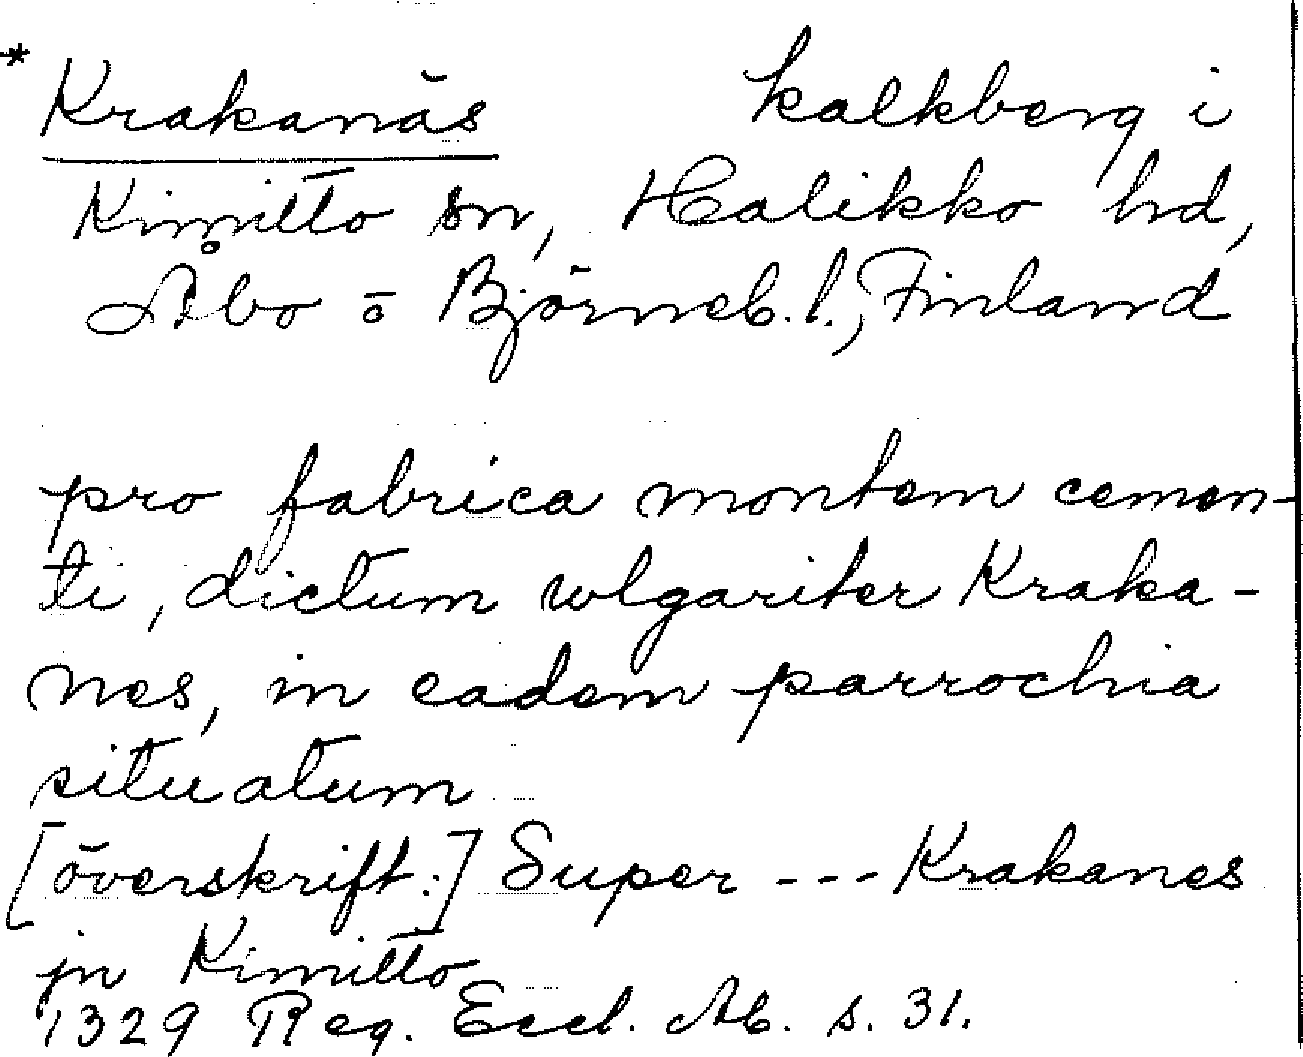 * Krakanäs kalkberg i
Kimitto sn, Halikko hd,
Åbo o Björneb. l., Finland
pro fabrica montem cemen-
ti, dictum wlgariter Kraka-
nes, in eadem parrochia
situatum
[överskrift:] Super --- Krakanes
jn Kimitto
1329 Reg. Eccl. Ab. s. 31.